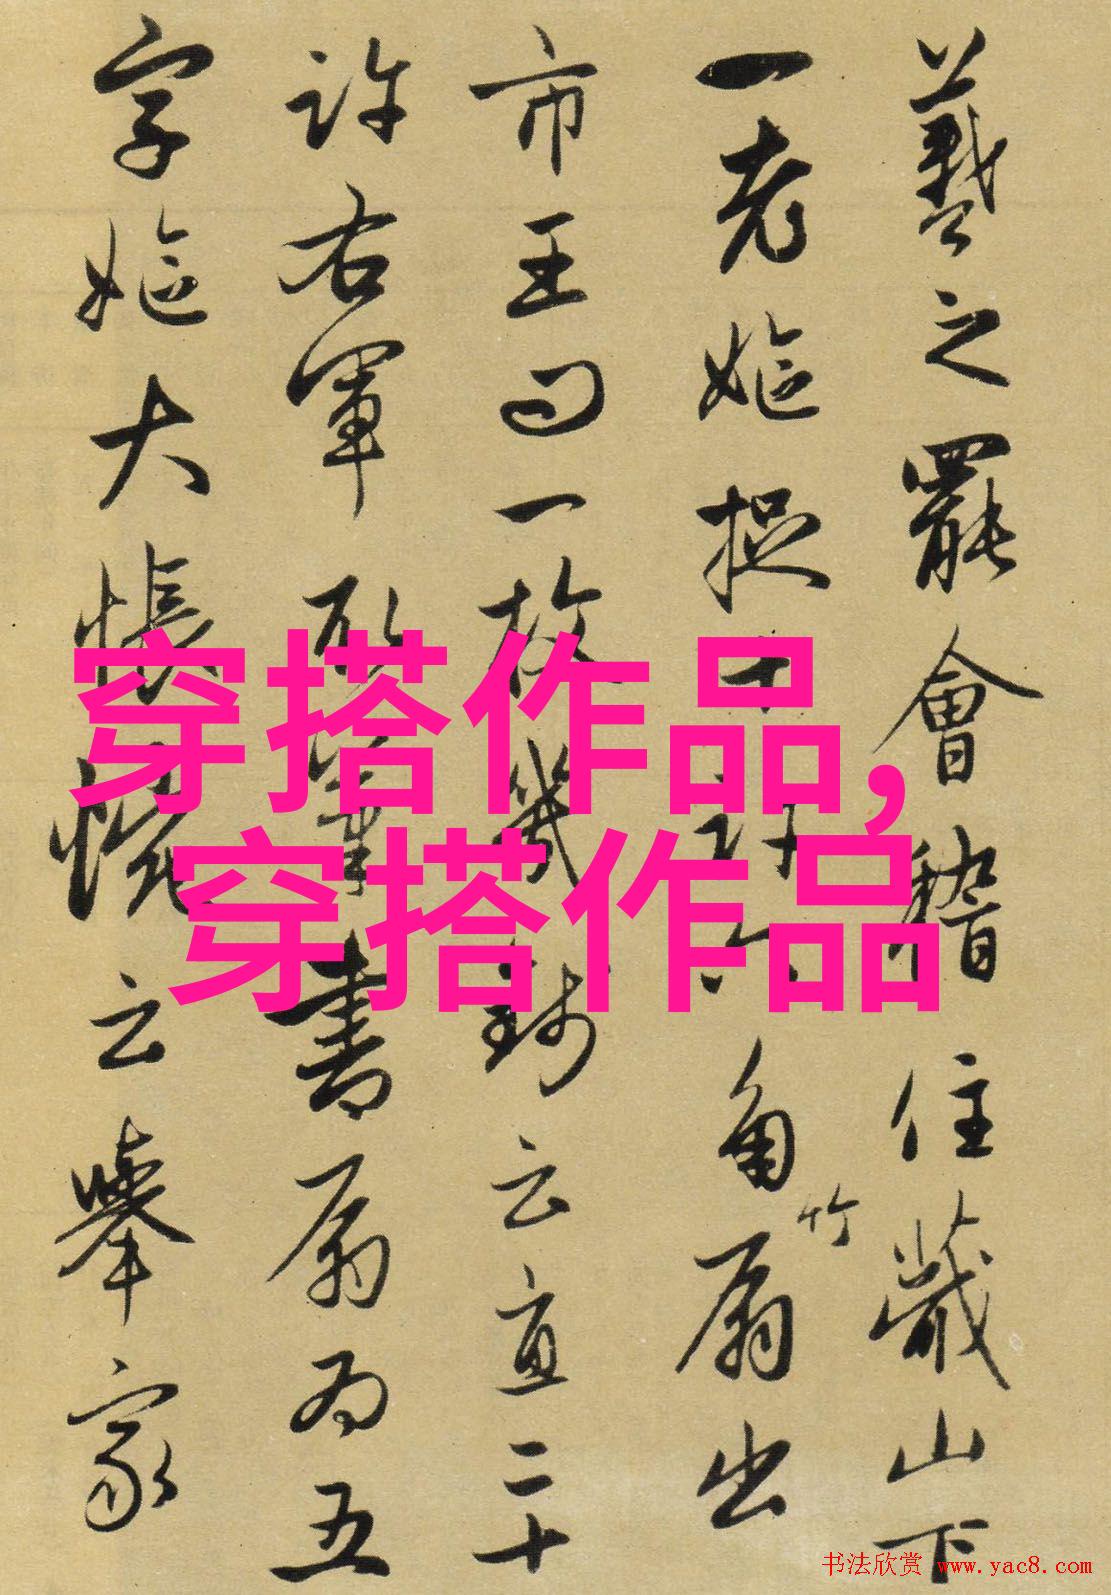 羲之罷會稽住蕺山下
一老嫗捉十許六角竹扇出
市王曰一故幾錢云直二十
許右軍取筆書扇為五
字嫗大悵惋云舉家
穿搭作品,
穿搭作品
书法欣赏 www.yac8.com